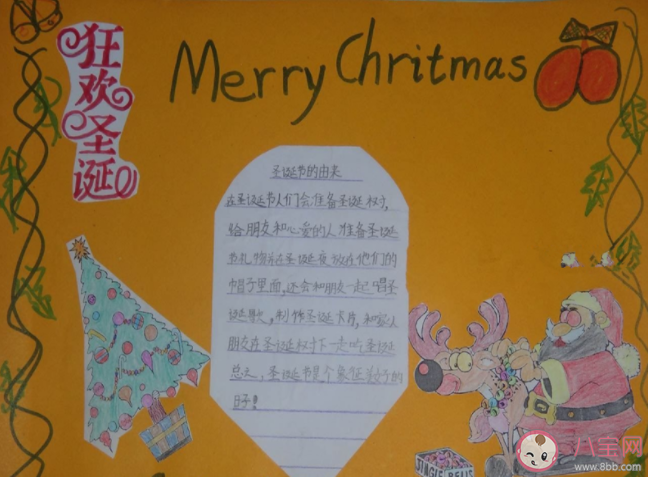 狂欢圣诞
Merry Chritmas
圣诞节的由来
在圣诞节人们会准备圣诞树,
给朋友和心爱的人准备圣诞
节礼物并在圣诞夜放在他们的
帽子里面,还会和朋友一起唱圣
诞歌,制作圣诞卡片,和家人
朋友在圣诞树下一起吃圣诞
圣诞节是个象征美好的
日子!
JINGLE BELLS
八宝网
www.8bb.com